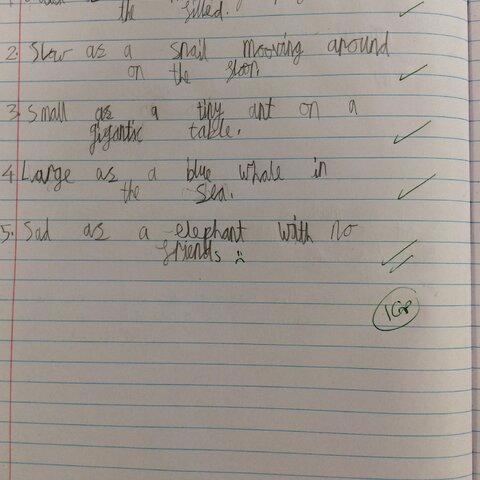 the filled.
2. Slow as a snail mooving around
on the floor.
3. Small as a tiny ant on a
gigantic table.
4. Large as a blue whale in
the sea.
5. Sad as a elephant with no
friends :(